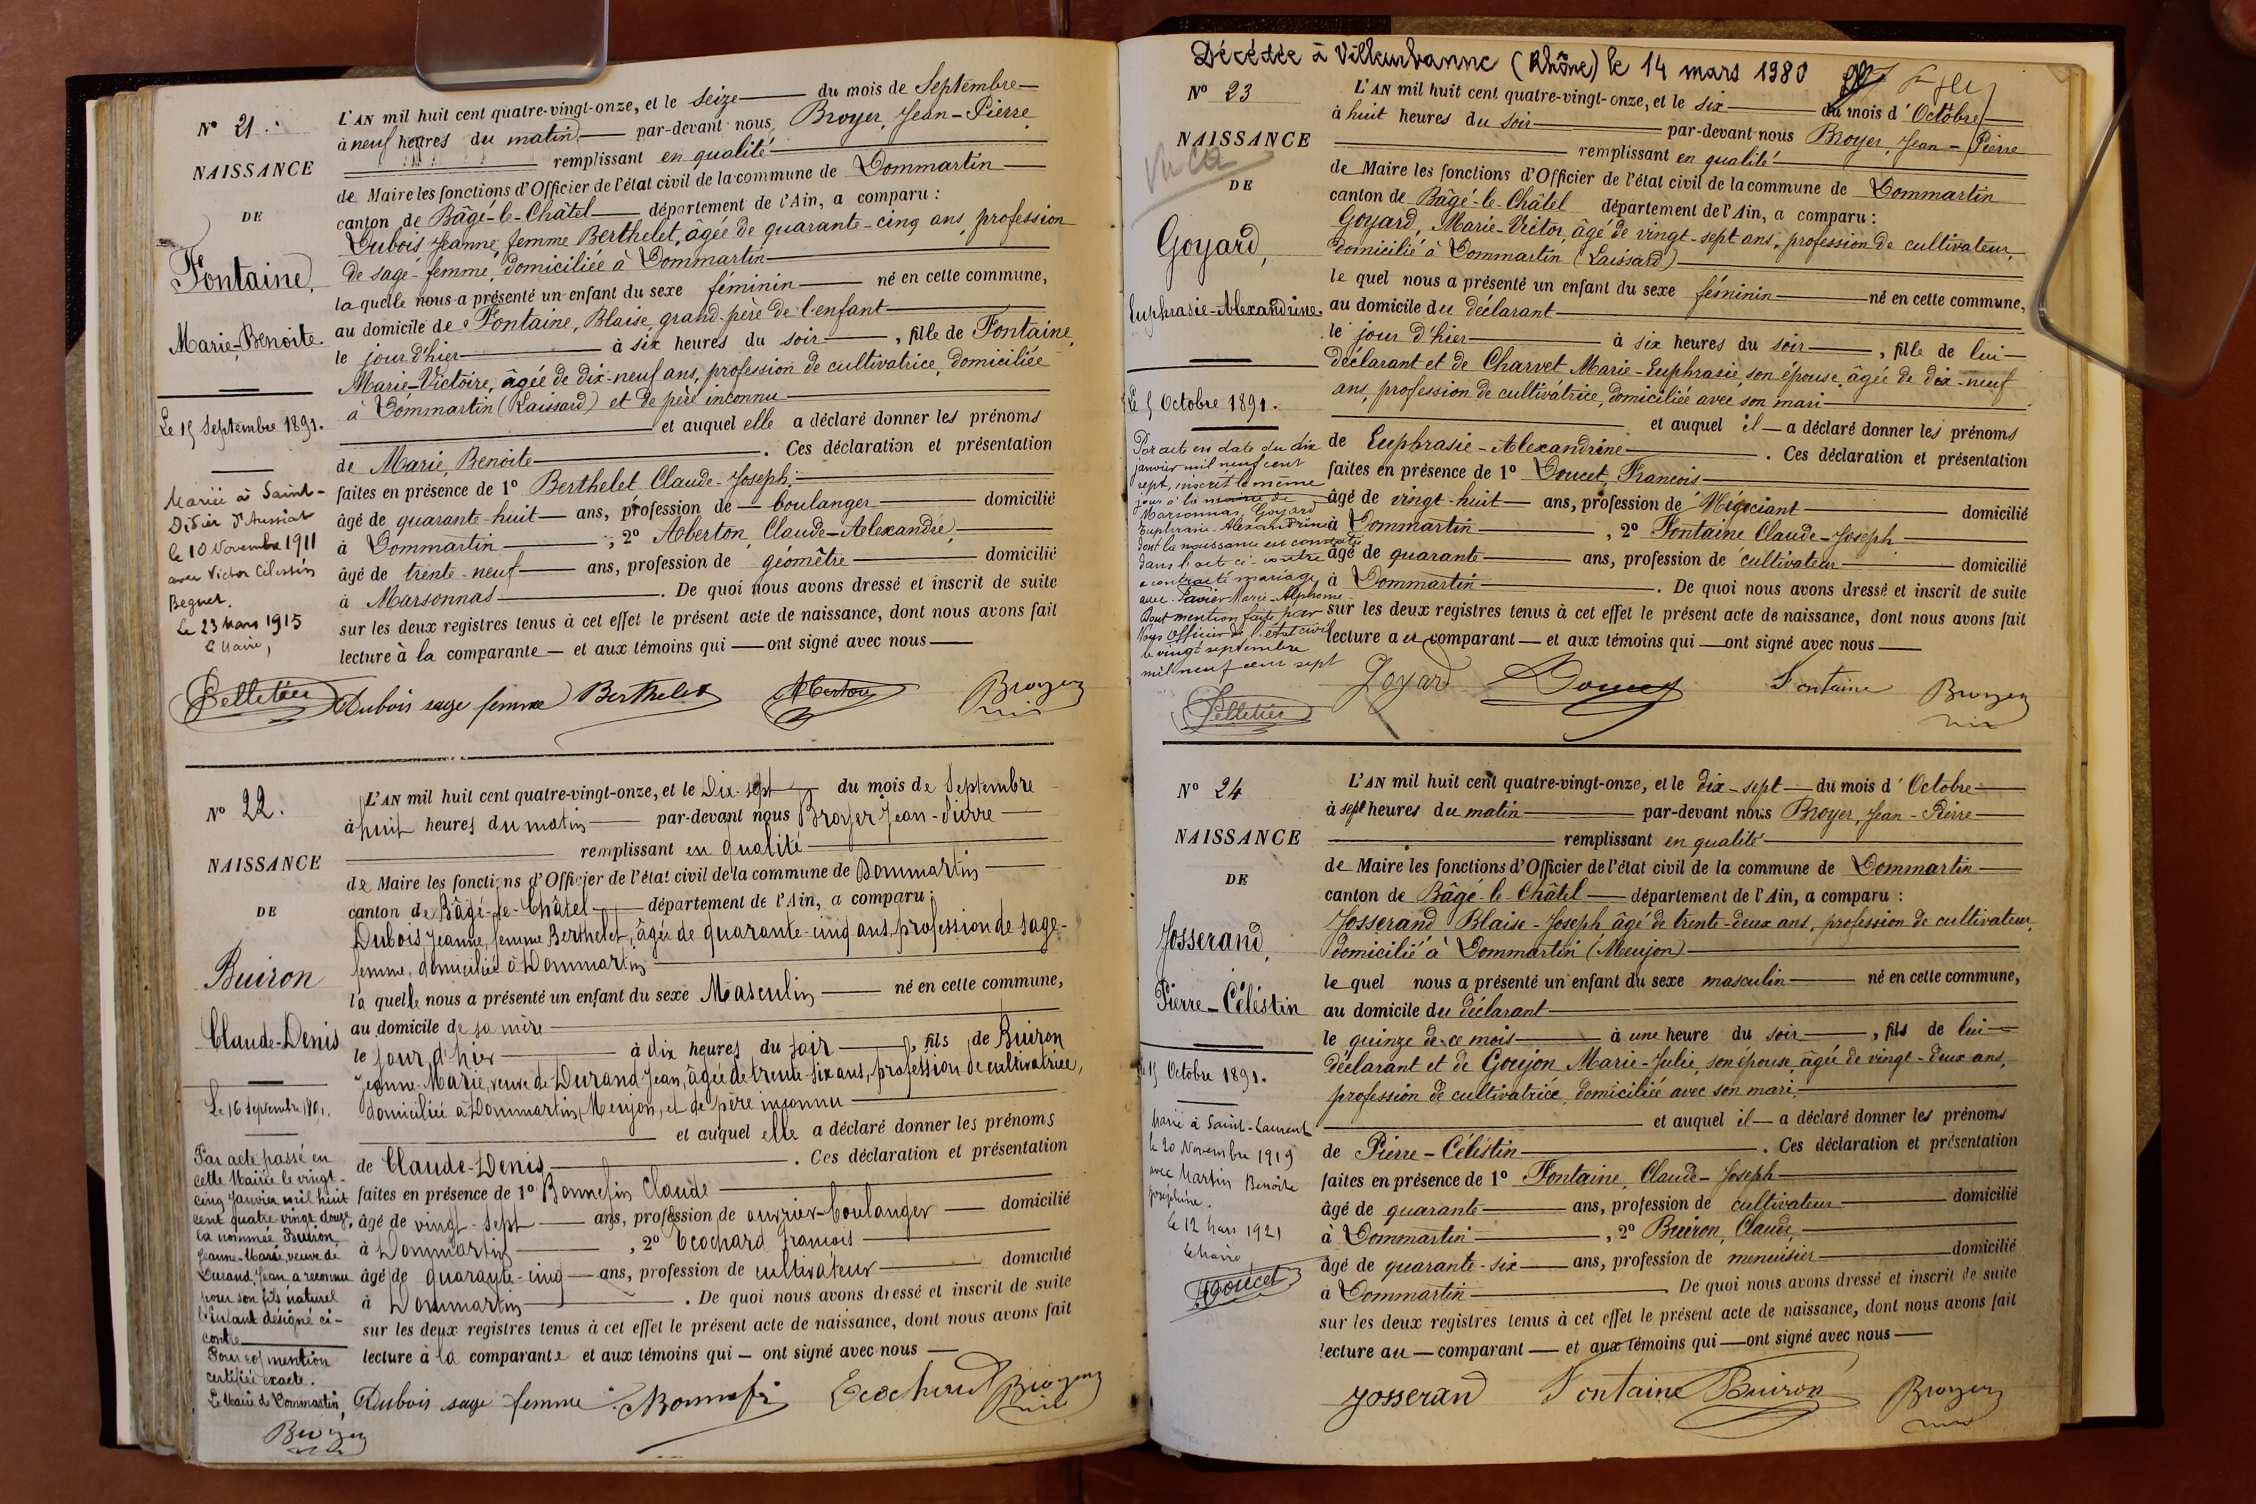 N° 21.
NAISSANCE
DE
Fontaine,
Marie-Benoite.
Le 15 Septembre 1891.
Mariée à Saint-
Didier d'Aussiat
le 10 Novembre 1911
avec Victor Célestin
Beguet.
Le 23 Mars 1915
Le Maire,
Pelletier
L'AN mil huit cent quatre-vingt-onze, et le seize du mois de Septembre
à neuf heures du matin par-devant nous Broyer, Jean-Pierre
remplissant en qualité
de Maire les fonctions d'Officier de l'état civil de la commune de Dommartin
canton de Bâgé-le-Châtel département de l'Ain, a comparu :
Dubois Jeanne, femme Berthelet, âgée de quarante-cinq ans, profession
de sage-femme, domiciliée à Dommartin
la quelle nous a présenté un enfant du sexe féminin né en cette commune,
au domicile de Fontaine, Blaise, grand-père de l'enfant
le jour d'hier à six heures du soir, fille de Fontaine,
Marie-Victoire, âgée de dix-neuf ans, profession de cultivatrice, domiciliée
à Dommartin (Laissard) et de père inconnu
et auquel elle a déclaré donner les prénoms
de Marie, Benoite. Ces déclaration et présentation
faites en présence de 1° Berthelet Claude-Joseph,
âgé de quarante-huit ans, profession de boulanger domicilié
à Dommartin ; 2° Aberton, Claude-Alexandre,
âgé de trente-neuf ans, profession de géomètre domicilié
à Marsonnas. De quoi nous avons dressé et inscrit de suite
sur les deux registres tenus à cet effet le présent acte de naissance, dont nous avons fait
lecture à la comparante et aux témoins qui ont signé avec nous
Dubois sage femme Berthelet Aberton Broyer
N° 22.
NAISSANCE
DE
Buiron
Claude-Denis
Le 16 septembre 1891.
Par acte passé en
cette Mairie le vingt-
cinq Janvier mil huit
cent quatre vingt douze,
la nommée Buiron
Jeanne-Marie, veuve de
Durand, Jean a reconnu
pour son fils naturel
l'Enfant désigné ci-
contre
Pour mention
certifiée exacte.
Le Maire de Dommartin,
Broyer
L'AN mil huit cent quatre-vingt-onze, et le Dix-sept du mois de Septembre
à huit heures du matin par-devant nous Broyer Jean-Pierre
remplissant en qualité
de Maire les fonctions d'Officier de l'état civil de la commune de Dommartin
canton de Bâgé-le-Châtel département de l'Ain, a comparu :
Dubois Jeanne, femme Berthelet, âgée de quarante-cinq ans, profession de sage-
femme, domiciliée à Dommartin
la quelle nous a présenté un enfant du sexe Masculin né en cette commune,
au domicile de sa mère
le jour d'hier à dix heures du soir, fils de Buiron
Jeanne-Marie, veuve de Durand Jean, âgée de trente-six ans, profession de cultivatrice,
domiciliée à Dommartin, Meujon, et de père inconnu
et auquel elle a déclaré donner les prénoms
de Claude-Denis. Ces déclaration et présentation
faites en présence de 1° Bonnefin Claude
âgé de vingt-sept ans, profession de ouvrier-boulanger domicilié
à Dommartin, 2° Ecochard François
âgé de quarante-cinq ans, profession de cultivateur domicilié
à Dommartin. De quoi nous avons dressé et inscrit de suite
sur les deux registres tenus à cet effet le présent acte de naissance, dont nous avons fait
lecture à la comparante et aux témoins qui ont signé avec nous
Dubois sage femme Ecochard Broyer
Décédée à Villeurbanne (Rhône) le 14 mars 1980
N° 23
NAISSANCE
DE
Goyard,
Euphrasie-Alexandrine.
Le 5 Octobre 1891.
Par acte en date du dix
janvier mil neuf cent
sept, inscrit le même
jour à la mairie de
Marsonnas, Goyard
Euphrasie-Alexandrine
dont la naissance est constatée
dans l'acte ci-contre
a contracté mariage
avec Pavier Marie-Alphonse
Dont mention faite par
nous Officier de l'état civil
le vingt septembre
mil neuf cent sept
Pelletier
L'AN mil huit cent quatre-vingt-onze, et le six du mois d'Octobre
à huit heures du soir par-devant nous Broyer, Jean-Pierre
remplissant en qualité
de Maire les fonctions d'Officier de l'état civil de la commune de Dommartin
canton de Bâgé-le-Châtel département de l'Ain, a comparu :
Goyard, Marie-Victor, âgé de vingt-sept ans, profession de cultivateur,
domicilié à Dommartin (Laissard)
le quel nous a présenté un enfant du sexe féminin né en cette commune,
au domicile du déclarant
le jour d'hier à six heures du soir, fille de lui
déclarant et de Charvet Marie-Euphrasie, son épouse, âgée de dix-neuf
ans, profession de cultivatrice, domiciliée avec son mari
et auquel il a déclaré donner les prénoms
de Euphrasie-Alexandrine. Ces déclaration et présentation
faites en présence de 1° Doucet, François
âgé de vingt-huit ans, profession de Négociant domicilié
à Dommartin, 2° Fontaine Claude-Joseph
âgé de quarante ans, profession de cultivateur domicilié
à Dommartin. De quoi nous avons dressé et inscrit de suite
sur les deux registres tenus à cet effet le présent acte de naissance, dont nous avons fait
lecture au comparant et aux témoins qui ont signé avec nous
Goyard Doucet Fontaine Broyer
N° 24
NAISSANCE
DE
Josserand,
Pierre-Céléstin
Le 15 Octobre 1891.
Marié à Saint-Laurent
le 20 Novembre 1919
avec Martin Benoîte
Joséphine.
Le 12 Mars 1921
Le Maire
Doucet
L'AN mil huit cent quatre-vingt-onze, et le dix-sept du mois d'Octobre
à sept heures du matin par-devant nous Broyer, Jean-Pierre
remplissant en qualité
de Maire les fonctions d'Officier de l'état civil de la commune de Dommartin
canton de Bâgé-le-Châtel département de l'Ain, a comparu :
Josserand Blaise-Joseph, âgé de trente-deux ans, profession de cultivateur,
domicilié à Dommartin (Meujon)
le quel nous a présenté un enfant du sexe masculin né en cette commune,
au domicile du déclarant
le quinze de ce mois à une heure du soir, fils de lui
déclarant et de Goujon Marie-Julie, son épouse, âgée de vingt-deux ans,
profession de cultivatrice, domiciliée avec son mari
et auquel il a déclaré donner les prénoms
de Pierre-Céléstin. Ces déclaration et présentation
faites en présence de 1° Fontaine, Claude-Joseph
âgé de quarante ans, profession de cultivateur domicilié
à Dommartin, 2° Buiron, Claude,
âgé de quarante-six ans, profession de menuisier domicilié
à Dommartin De quoi nous avons dressé et inscrit de suite
sur les deux registres tenus à cet effet le présent acte de naissance, dont nous avons fait
lecture au comparant et aux témoins qui ont signé avec nous
Josserand Fontaine Buiron Broyer